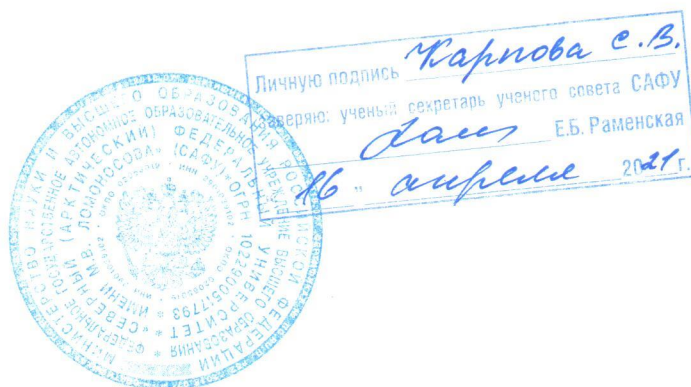 Личную подпись Карпова С.В.
заверяю: ученый секретарь ученого совета САФУ
Е.Б. Раменская
16 " апреля 2021 г.
МИНИСТЕРСТВО НАУКИ И ВЫСШЕГО ОБРАЗОВАНИЯ РОССИЙСКОЙ ФЕДЕРАЦИИ
ФЕДЕРАЛЬНОЕ ГОСУДАРСТВЕННОЕ АВТОНОМНОЕ ОБРАЗОВАТЕЛЬНОЕ УЧРЕЖДЕНИЕ ВЫСШЕГО ОБРАЗОВАНИЯ
«СЕВЕРНЫЙ (АРКТИЧЕСКИЙ) ФЕДЕРАЛЬНЫЙ УНИВЕРСИТЕТ
ИМЕНИ М.В. ЛОМОНОСОВА» (САФУ) ОГРН 1022900517793